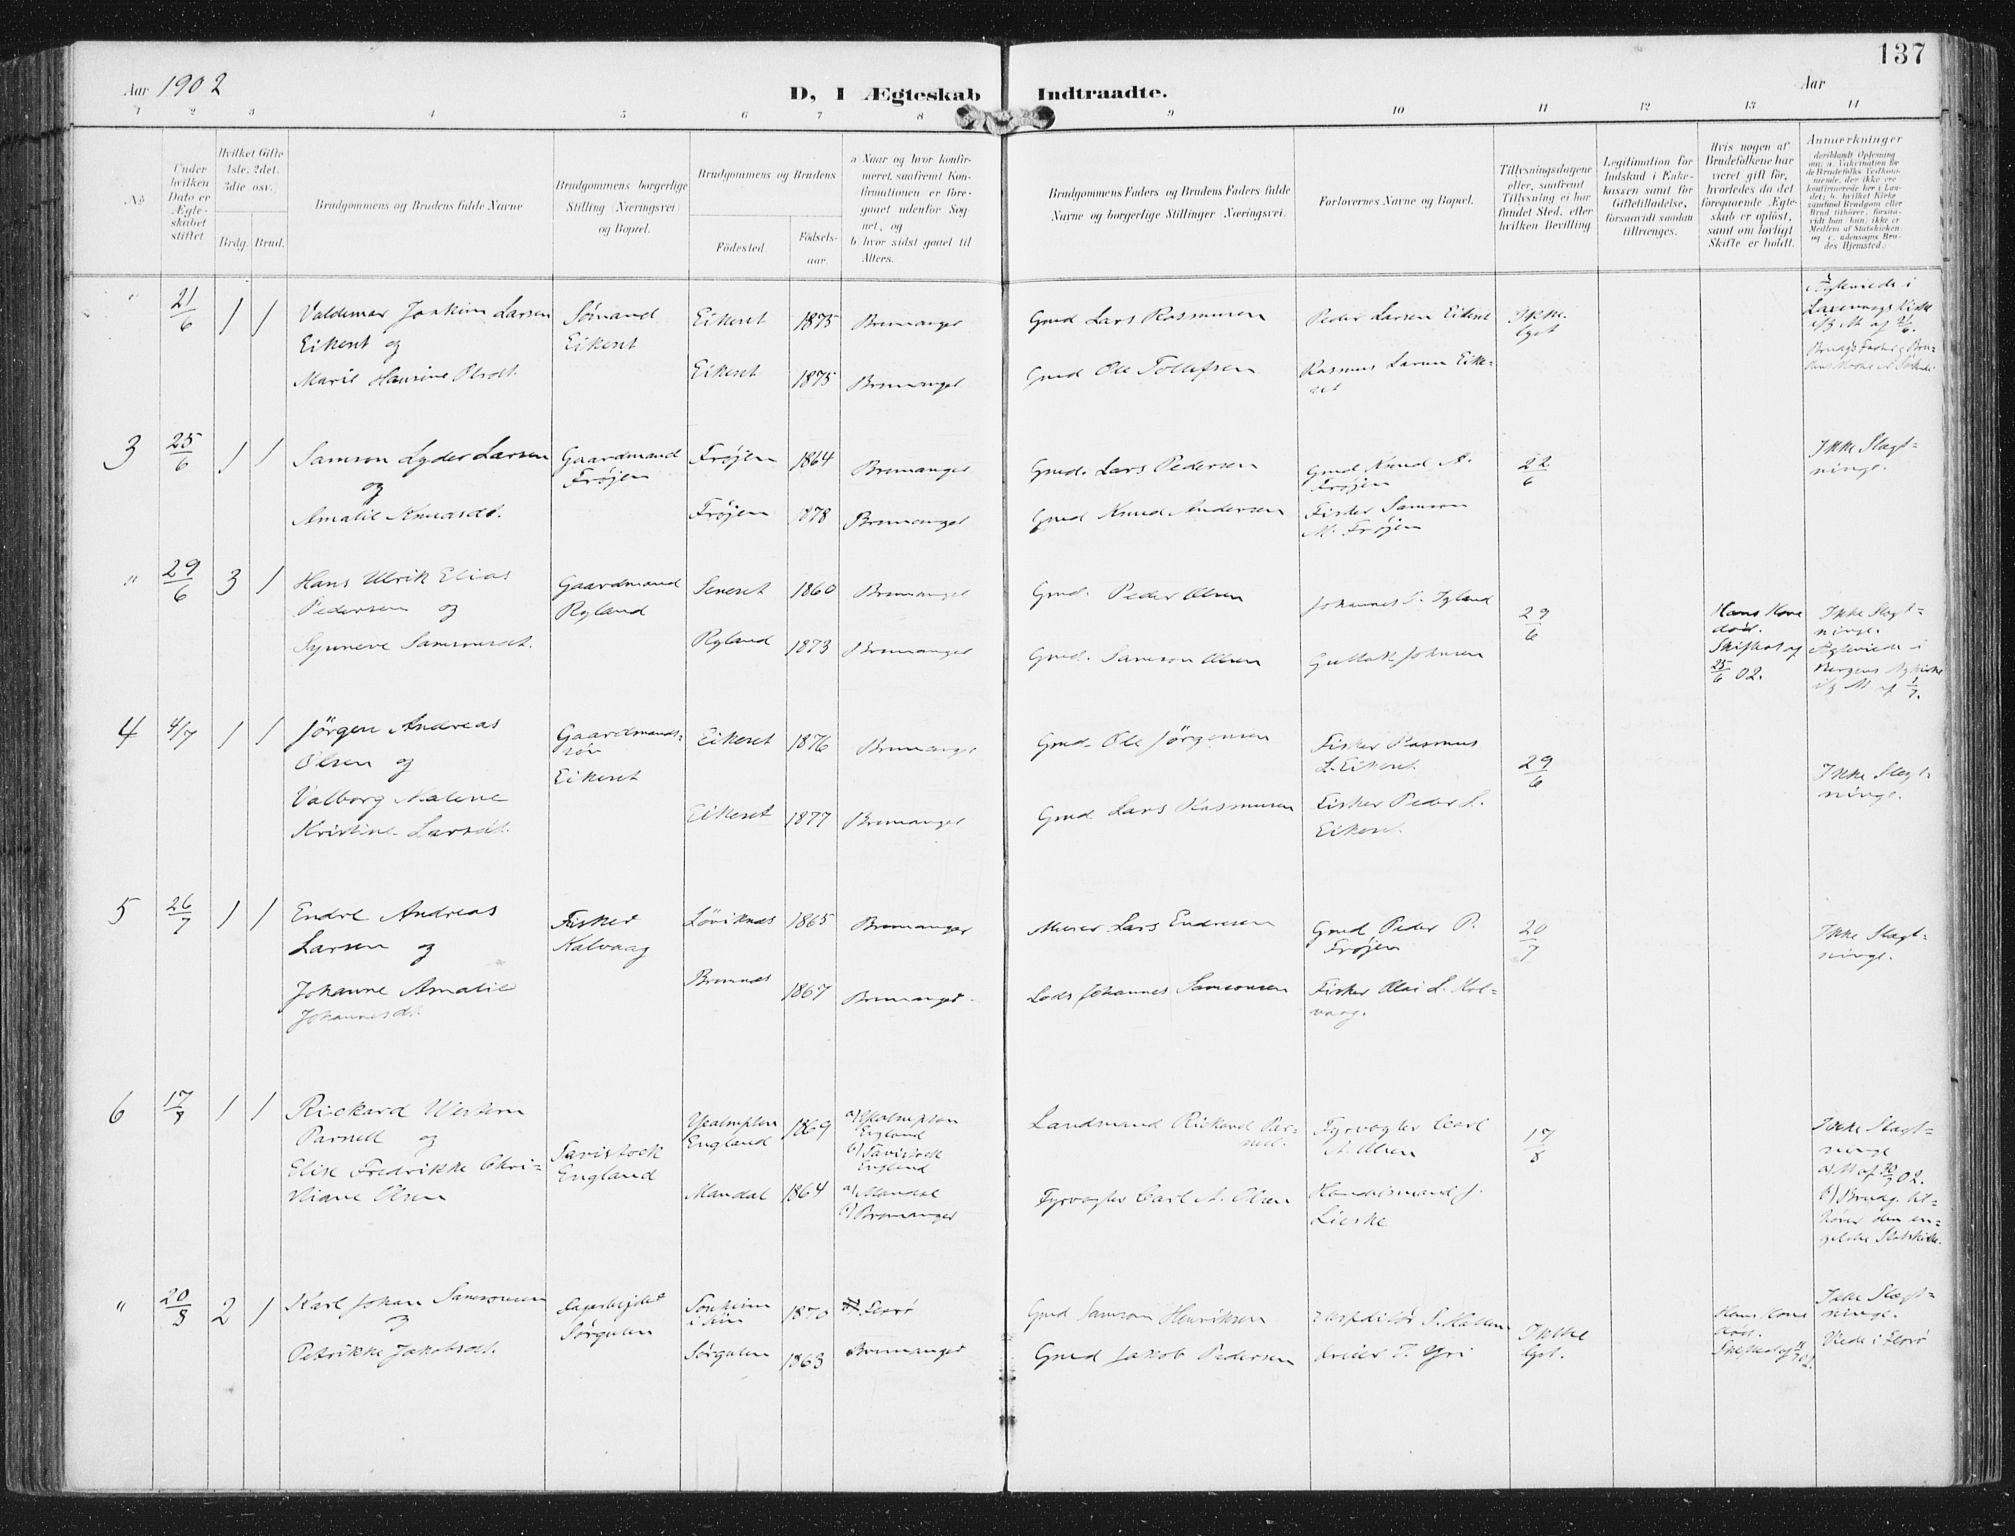 137
Aar 1902
D, I Ægteskab Indtraadte.
Aar
1 2 3 4 5 6 7 8 9 10 11 12 13 14
No
Under hvilken Dato er Ægteskabet stiftet
Hvilket Gifte 1ste, 2det, 3die osv.
Brdg. Brud.
Brudgommens og Brudens fulde Navne
Brudgommens borgerlige Stilling (Næringsvei) og Bopæl.
Brudgommens og Brudens
Födested.
Födsels-aar.
a Naar og hvor konfirmeret, saafremt Konfirmationen er foregaaet udenfor Sognet, og
b hvor sidst gaaet til Alters.
Brudgommens Faders og Brudens Faders fulde Navne og borgerlige Stillinger (Næringsvei.
Forlovernes Navne og Bopæl.
Tillysningsdagene eller, saafremt Tillysning ei har fundet Sted, efter hvilken Bevilling.
Legitimation for Indskud i Enkekassen samt for Giftetilladelse, forsaavidt saadan tiltrænges.
Hvis nogen af Brudefolkene har været gift för, hvorledes da det foregaaende Ægteskab er oplöst, samt om lovligt Skifte er holdt.
Anmærkninger
" 21/6 1 1 Valdemar Joakim Larsen
Eikeset og
Marie Hansine Olsdt.
Sömand
Eikeset
Eikeset 1875 Bremanger
Eikeset 1875 Bremanger
Gmd Lars Rasmussen
Gmd Ole Tollefsen
Peder Larsen Eikeset
Rasmus Larsen Eike-
set
Ikke
lyst
3 25/6 1 1 Samson Lyder Larsen
og
Amalie Knudsdt.
Gaardmand
Fröjen
Fröjen 1864 Bremanger
Fröjen 1878 Bremanger
Gmd. Lars Pedersen
Gmd Knud Andersen
Gmd Knud A.
Fröjen
Fisker Samson
M. Fröjen
22/6
Ikke Slægt-
ninge.
" 29/6 3 1 Hans Ulrik Elias
Pedersen og
Synneve Samsonsdt.
Gaardmand
Ryland
Seneset 1860 Bremanger
Ryland 1873 Bremanger
Gmd. Peder Olsen
Gmd. Samson Olsen
Gullak Johnsen
29/6
Hans Kone
död.
Skifteat af
25/6 02.
Ikke Slægt-
ninge.
Ægteviede i
4 4/7 1 1 Jörgen Andreas
Olsen og
Valborg Malene
Kristine Larsdt.
Gaardmands-
sön
Eikeset
Eikeset 1876 Bremanger
Eikeset 1877 Bremanger
Gmd. Ole Jörgensen
Gmd. Lars Rasmussen
Fisker Rasmus
L. Eikeset
Fisker Peder L.
Eikeset.
29/6
Ikke Slægt-
ninge.
5 26/7 1 1 Endre Andreas
Larsen og
Johanne Amalie
Johannesdt.
Fisker
Kalvaag
Löviknæs 1865 Bremanger
Bremnæs 1867 Bremanger
Murer Lars Endresen
Lods Johannes Samsonsen
Gmd Peder P.
Fröjen
Fisker Olai L. Kal-
vaag.
20/7
Ikke Slægt-
ninge.
6 17/8 1 1 Rickard Western
Parnell og
Elise Fredrikke Chri-
stiane Olsen
Tavistock
England
England 1869
England
b) Tavistock
England
Mandal 1864 a) Mandal
b) Bremanger
Landmand Rickard Par-
nell.
Fyrvogter Carl A. Olsen
Fyrvogter Carl
A. Olsen
Handelsmand J.
Lieske
17/8
Ikke Slægt-
ninge
b) Brudg. til-
hörer den en-
gelske Statskirke.
" 20/8 2 1 Karl Johan Samsonsen
og
Petrikke Jakobsdt.
Sagarbejder
Sörgulen
1870 Florö
Sörgulen 1863 Bremanger
Gmd Samson Henriksen
Gmd Jakob Pedersen
Ikke
lyst.
Hans Kone
död.
Ikke Slægt-
ninge.
Viede i Florö